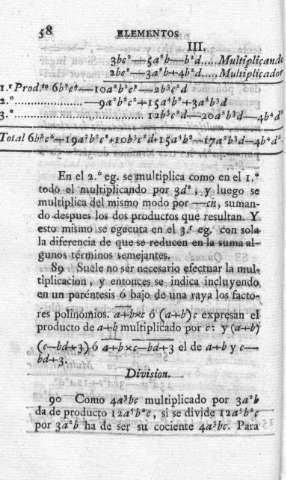 58 ELEMENTOS
III.
3bc²—5a²b—b²d.....Multiplicando
2bc²—3a²b+4b²d.....Multiplicador
1.er Prod.to 6b²c⁴—10a²b²c²—2b³c²d
2.º —9a²b²c²+15a⁴b²+3a²b³d
3.º 12b³c²d—20a²b³d—4b⁴d²
Total 6b²c⁴—19a²b²c²+10b³c²d+15a⁴b²—17a²b³d—4b⁴d²
En el 2.º eg. se multiplica como en el 1.º
todo el multiplicando por 3d², y luego se
multiplica del mismo modo por —cn, suman-
do despues los dos productos que resultan. Y
esto mismo se egecuta en el 3.r eg. con sola
la diferencia de que se reducen en la suma al-
gunos términos semejantes.
89 Suele no ser necesario efectuar la mul-
tiplicacion, y entonces se indica incluyendo
en un paréntesis ó bajo de una raya los facto-
res polinomios. a+b×c ó (a+b)c expresan el
producto de a+b multiplicado por c: y (a+b)
(c—bd+3) ó a+b×c—bd+3 el de a+b y c—
bd+3.
Division.
90 Como 4a³bc multiplicado por 3a²b
da de producto 12a⁵b²c, si se divide 12a⁵b²c
por 3a²b ha de ser su cociente 4a³bc. Para